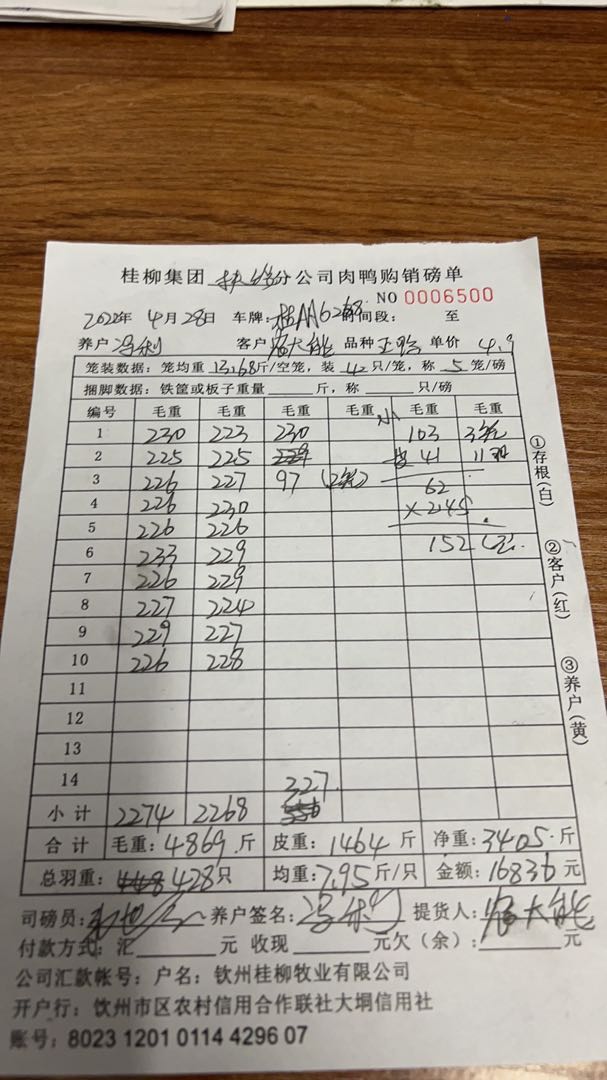 桂柳集团 分公司肉鸭购销磅单
NO 0006500
2022年 4月28日 车牌: 桂AA6268 时间段: 至
养户 冯利 客户 大能 品种 单价 4.9
笼装数据: 笼均重 13.68斤/空笼, 装 42只/笼, 称 5 笼/磅
捆脚数据: 铁筐或板子重量 斤, 称 只/磅
编号 毛重 毛重 毛重 毛重 毛重 毛重
1 230 223 230 103 3笼
2 225 225 229 41 11
3 226 227 97 (2笼) 62
4 226 230 ×2.45
5 226 226
6 233 229 152
7 226 229
8 227 224
9 229 227
10 226 228
11
12
13
14 327
小计 2274 2268
合计 毛重: 4869.斤 皮重: 1464 斤 净重: 3405.斤
总羽重: 428只 均重: 7.95斤/只 金额: 16836 元
司磅员: 养户签名: 冯利 提货人: 大能
付款方式: 汇 元 收现 元欠(余): 元
公司汇款帐号: 户名: 钦州桂柳牧业有限公司
开户行: 钦州市区农村信用合作联社大垌信用社
账号: 8023 1201 0114 4296 07
①存根(白)
②客户(红)
③养户(黄)